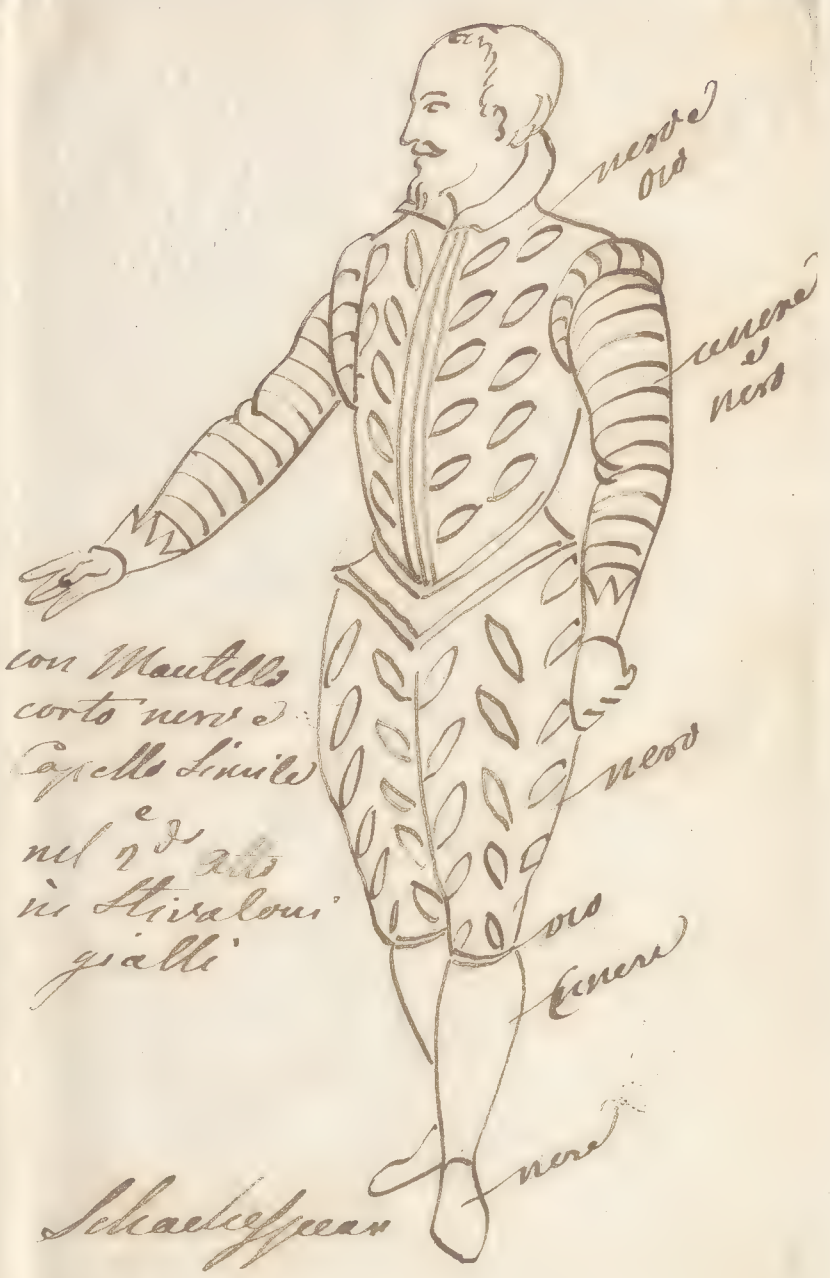 nero e
oro
cenere
e
nero
con Mantello
corto nero e
Capello Simile
nel 2do atto
in Stivaloni
gialli
nero
oro
Cenere
nere
Schackespear